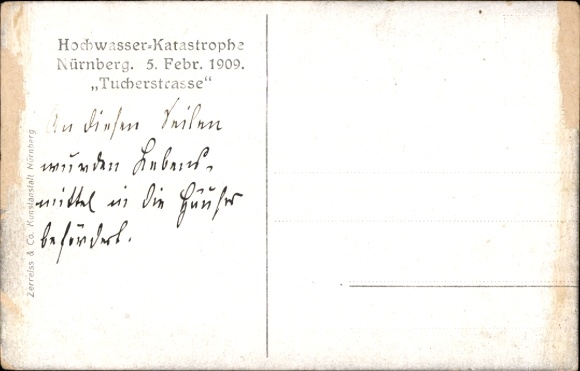 Hochwasser-Katastrophe
Nürnberg. 5. Febr. 1909.
„Tucherstrasse“
An diesen Seilen
wurden Lebens-
mittel in die Häuser
befördert.
Zerreiss & Co. Kunstanstalt Nürnberg